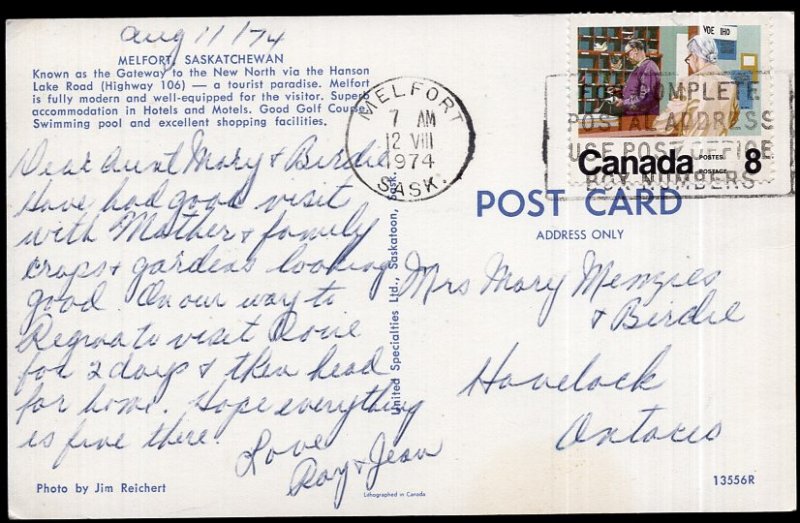 aug 11/74
MELFORT, SASKATCHEWAN
Known as the Gateway to the New North via the Hanson
Lake Road (Highway 106) — a tourist paradise. Melfort
is fully modern and well-equipped for the visitor. Superb
accommodation in Hotels and Motels. Good Golf Course
Swimming pool and excellent shopping facilities.
Dear Aunt Mary & Birdie
Have had good visit
with Mother & family
crops & gardens looking
good On our way to
Regina to visit
for 2 days & then head
for home. Hope everything
is fine there.
Love
Ray & Jean
Photo by Jim Reichert
United Specialties Ltd., Saskatoon, Sask.
Lithographed in Canada
MELFORT
7 AM
12 VIII
1974
SASK.
VOE 1HO
FOR COMPLETE
POSTAL ADDRESS
USE POST OFFICE
BOX NUMBERS
Canada POSTES POSTAGE 8
POST CARD
ADDRESS ONLY
Mrs Mary Menzies
& Birdie
Havelock
Ontario
13556R